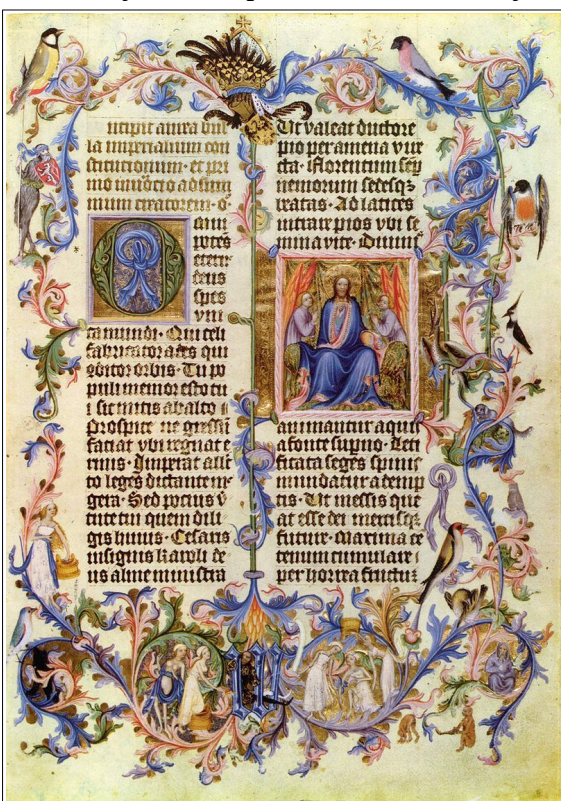 ncipit aurea bul
la imperialium con
stitucionum. et pri
mo inuocacio ad sum
mum creatorem. o
mni
potēs
eterne
deus
spes
vni
ca mundi. Qui celi
fabricator ades qui
ɔditor orbis. Tu po
puli memor esto tu
i sic mitis ab alto
Prospice ne gressū
faciat vbi regnat e
rinis. Imperat alle
to leges dictante me
gera. Sed pocius v̄
tute tui quem dili
gis huius. Cesaris
insignis karoli de
us alme ministra
Ut valeat ductore
pio per amena vire
cta. florentum semp̄
nemorum sedesqꝫ
beatas. Ad latices
intrare pios vbi se
mina vite. Diuinis
animantur aquis
a fonte supno. Leti
ficata seges spinis
mundatur a demp
tis. Ut messis que
at esse dei mercisqꝫ
future. Maxima cē
tenum cumulare
per horrea fructuꝫ
W